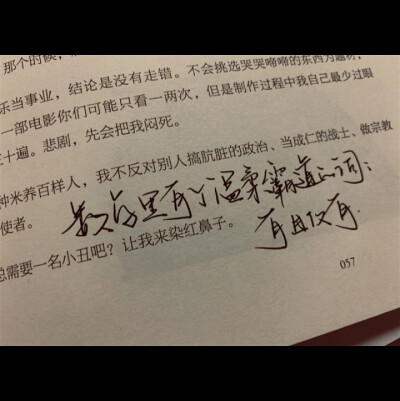 那个时候，
乐当事业，结论是没有走错。不会挑选哭哭啼啼的东西为题材，
一部电影你们可能只看一两次，但是制作过程中我自己最少过眼
十遍。悲剧，先会把我闷死。
种米养百样人，我不反对别人搞肮脏的政治、当成仁的战士、做宗教
使者。
数学里有个温柔霸道的词：
总需要一名小丑吧？让我来染红鼻子。
有且仅有.
057